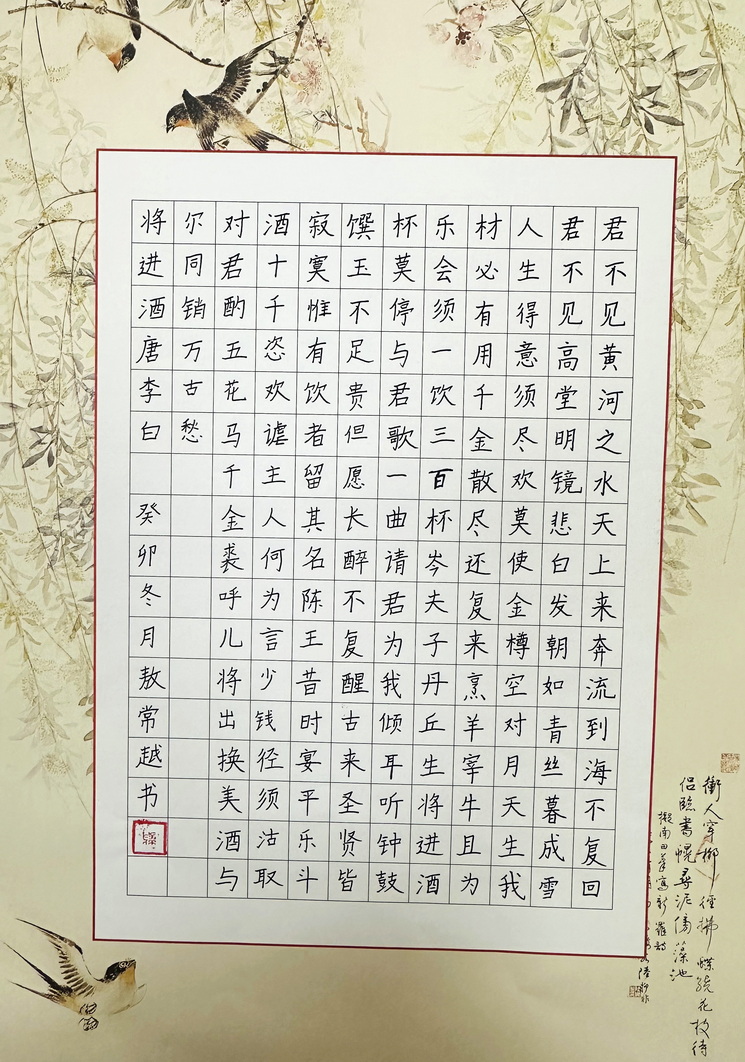 君不见黄河之水天上来奔流到海不复回
君不见高堂明镜悲白发朝如青丝暮成雪
人生得意须尽欢莫使金樽空对月天生我
材必有用千金散尽还复来烹羊宰牛且为
乐会须一饮三百杯岑夫子丹丘生将进酒
杯莫停与君歌一曲请君为我倾耳听钟鼓
馔玉不足贵但愿长醉不复醒古来圣贤皆
寂寞惟有饮者留其名陈王昔时宴平乐斗
酒十千恣欢谑主人何为言少钱径须沽取
对君酌五花马千金裘呼儿将出换美酒与
尔同销万古愁
将进酒唐李白 癸卯冬月敖常越书
衝人穿柳徑拂蝶繞花枝待
侣臨書幌尋泥傍藻池